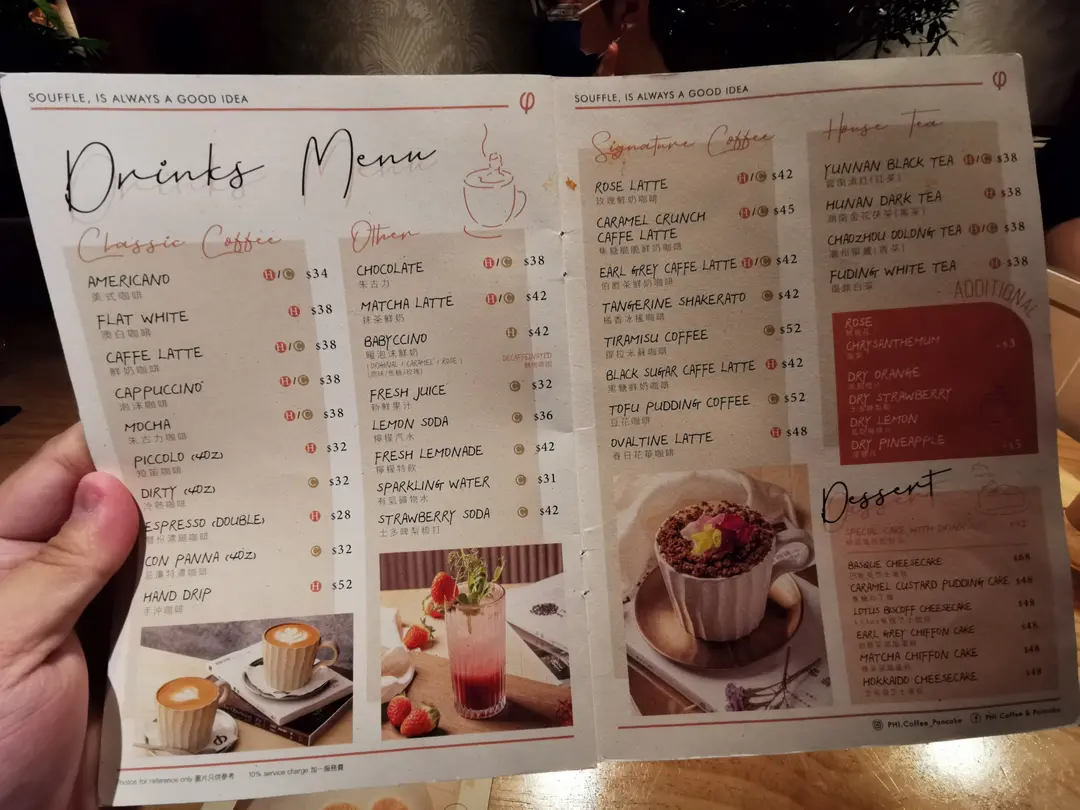 SOUFFLE, IS ALWAYS A GOOD IDEA
φ
Drinks Menu
Classic Coffee
AMERICANO H/C $34
美式咖啡
FLAT WHITE H $38
澳白咖啡
CAFFE LATTE H/C $38
鮮奶咖啡
CAPPUCCINO H/C $38
泡沫咖啡
MOCHA H/C $38
朱古力咖啡
PICCOLO (4OZ) H $32
短笛咖啡
DIRTY (4OZ) C $32
ESPRESSO (DOUBLE) H $28
雙份濃縮咖啡
CON PANNA (4OZ) C $32
HAND DRIP H $52
手沖咖啡
Other
CHOCOLATE H/C $38
朱古力
MATCHA LATTE H/C $42
抹茶鮮奶
BABYCCINO H $42
暖泡沫鮮奶
(ORIGINAL / CARAMEL / ROSE)
(原味/焦糖/玫瑰)
DECAFFEINATED
FRESH JUICE C $32
新鮮果汁
LEMON SODA C $36
檸檬汽水
FRESH LEMONADE C $42
檸檬特飲
SPARKLING WATER C $31
有氣礦物水
STRAWBERRY SODA C $42
士多啤梨梳打
Photos for reference only 圖片只供參考 10% service charge 加一服務費
SOUFFLE, IS ALWAYS A GOOD IDEA
φ
Signature Coffee
ROSE LATTE H/C $42
玫瑰鮮奶咖啡
CARAMEL CRUNCH
CAFFE LATTE H/C $45
焦糖脆脆鮮奶咖啡
EARL GREY CAFFE LATTE H/C $42
伯爵茶鮮奶咖啡
TANGERINE SHAKERATO C $42
橘香冰搖咖啡
TIRAMISU COFFEE C $52
提拉米蘇咖啡
BLACK SUGAR CAFFE LATTE H $42
黑糖鮮奶咖啡
TOFU PUDDING COFFEE C $52
豆花咖啡
OVALTINE LATTE H $48
House Tea
YUNNAN BLACK TEA H/C $38
雲南滇紅(紅茶)
HUNAN DARK TEA H $38
湖南金花茯茶(黑茶)
CHAOZHOU OOLONG TEA H/C $38
FUDING WHITE TEA H $38
ADDITIONAL
ROSE
CHRYSANTHEMUM +$3
DRY ORANGE
DRY STRAWBERRY
DRY LEMON
DRY PINEAPPLE +$5
Dessert
SPECIAL CAKE WITH DRINK
BASQUE CHEESECAKE $68
CARAMEL CUSTARD PUDDING CAKE $48
LOTUS BISCOFF CHEESECAKE $48
EARL GREY CHIFFON CAKE $48
MATCHA CHIFFON CAKE $48
HOKKAIDO CHEESECAKE $48
PHI.Coffee_Pancake PHI Coffee & Pancake